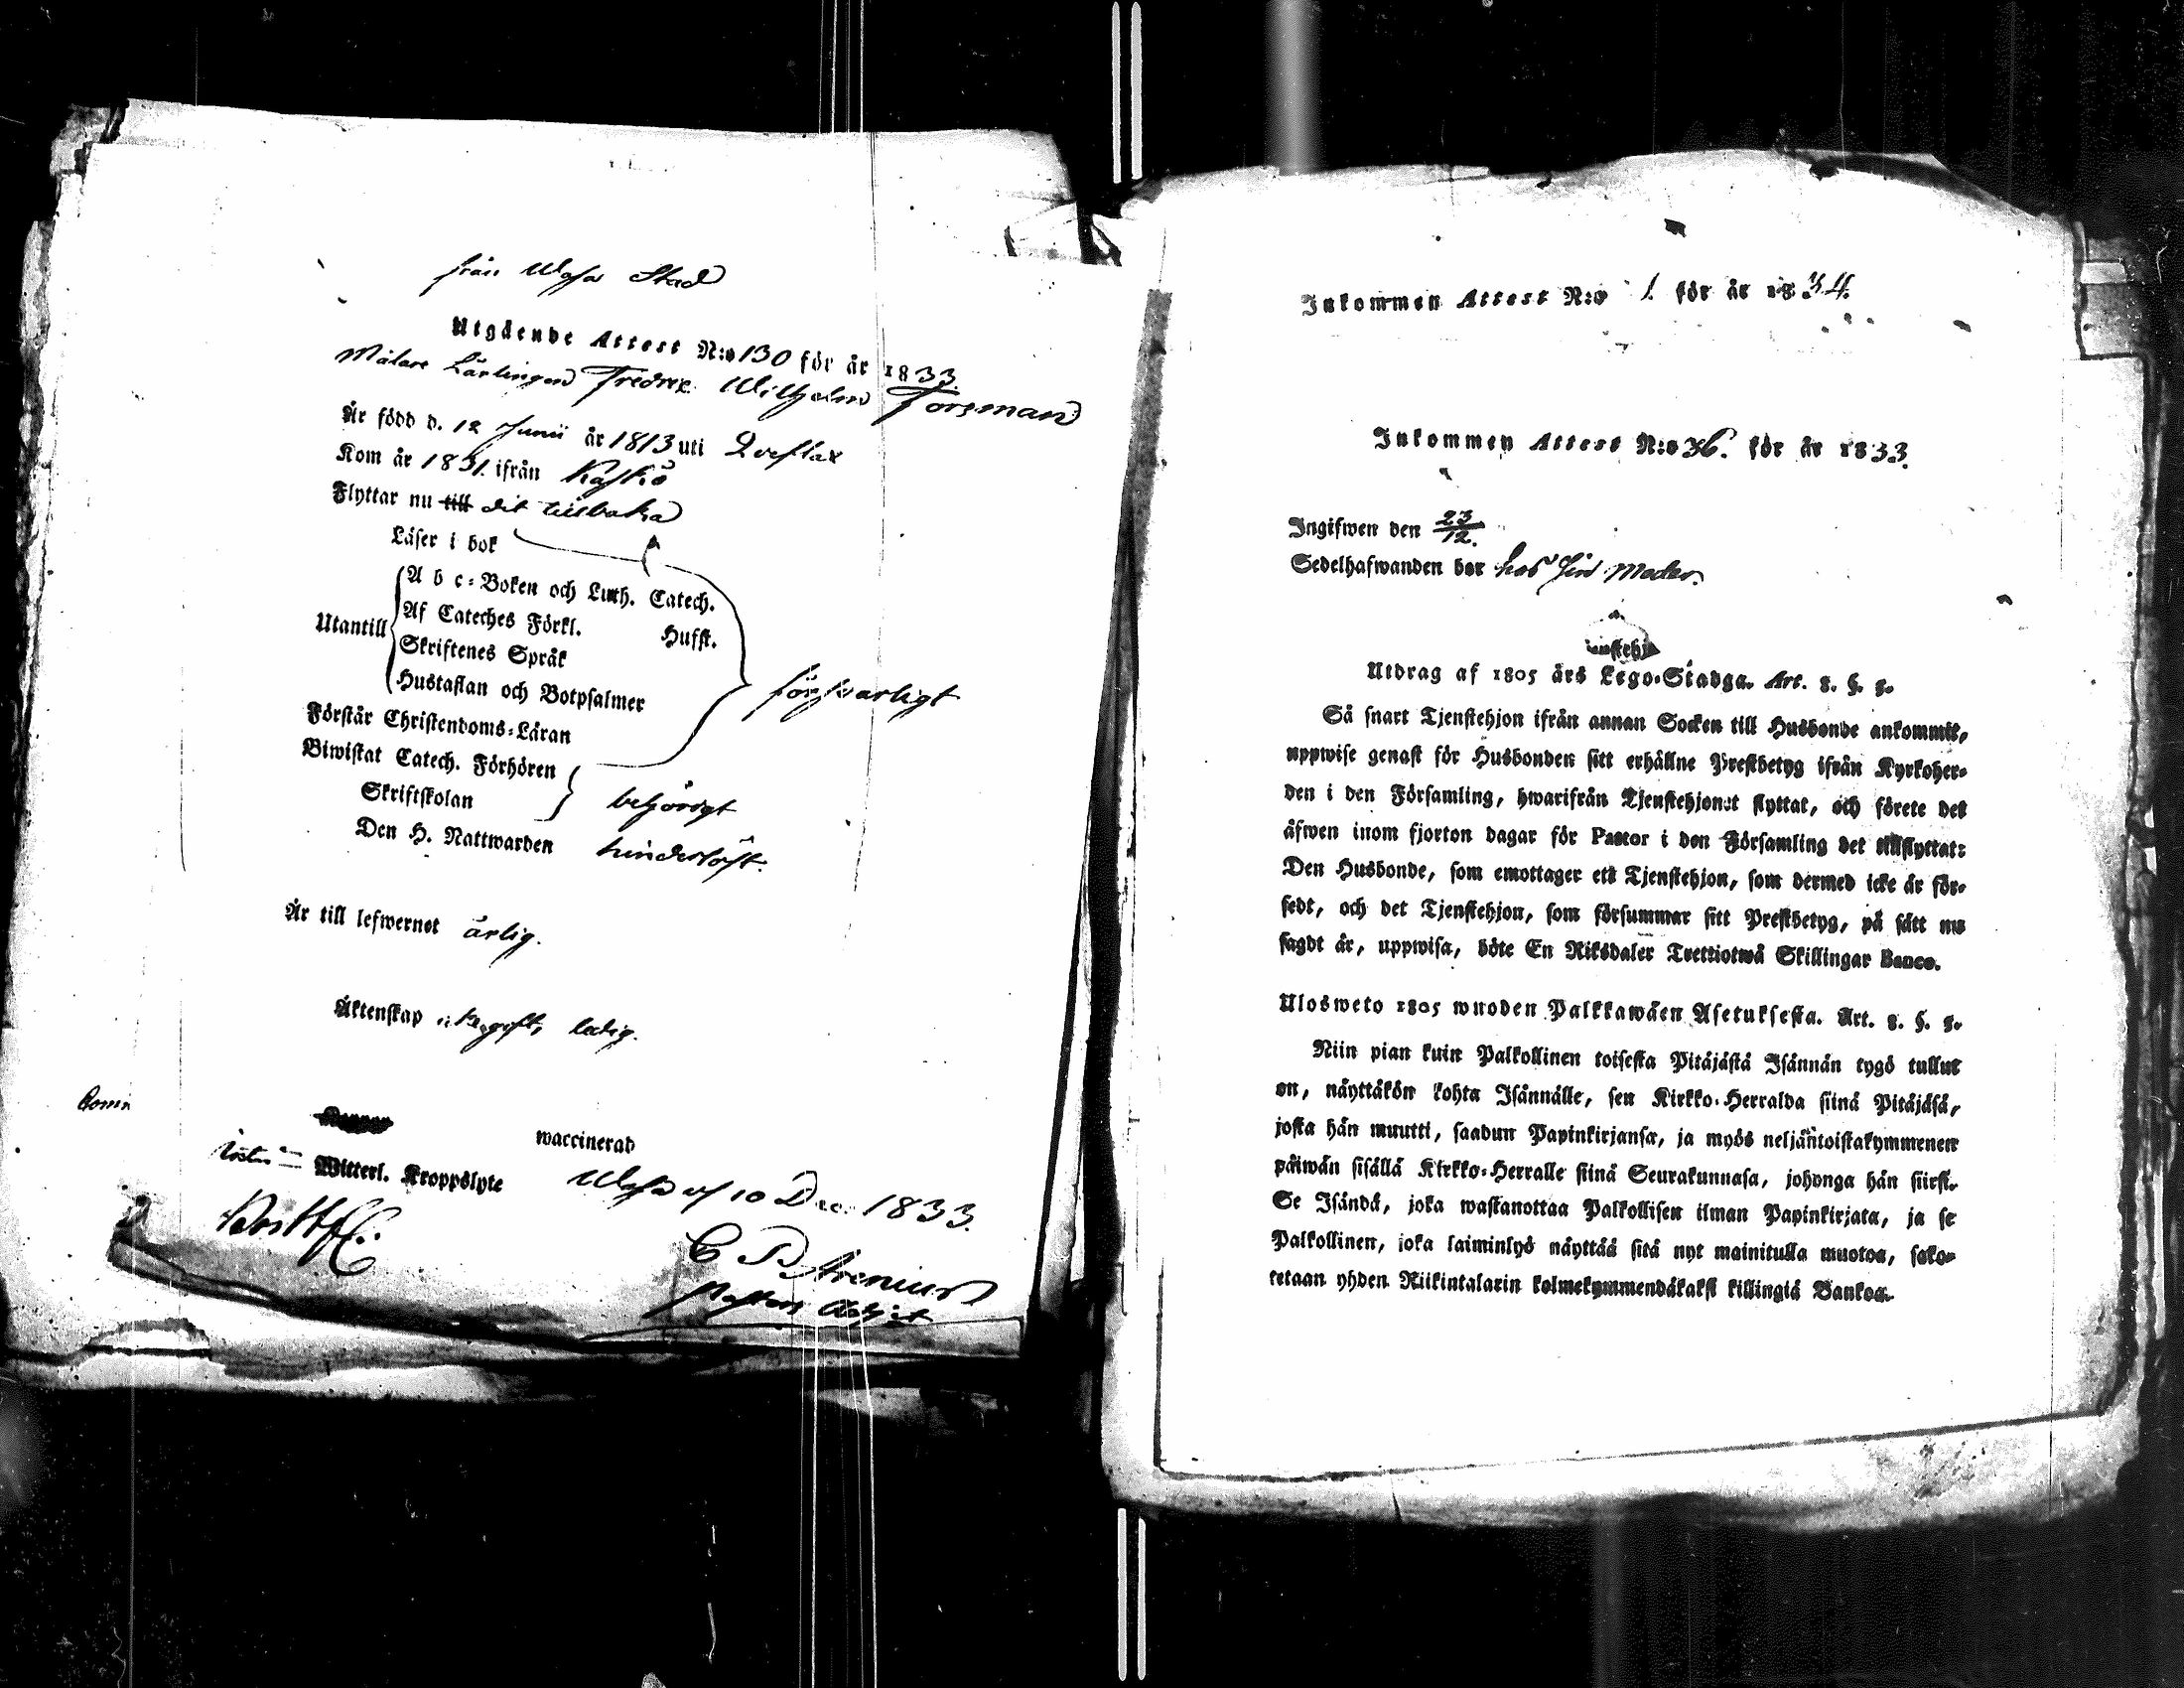 från Wasa Stad
Utgående Attest N:o 130 för år 1833.
Målare Lärlingen Fredric Wilhelm Forsman
Är född d. 12 Junii år 1813 uti Qveflax
Kom år 1831. ifrån Kaskö
Flyttar nu till dit tillbaka
Läser i bok
A b c-Boken och Luth. Catech.
Af Cateches Förkl. Husst.
Utantill
Skriftenes Språk
Hustaflan och Botpsalmer
försvarligt
Förstår Christendoms-Läran
Biwistat Catech. Förhören
Skriftskolan
behörigt
Den H. Nattwarden hinderlöst.
Är till lefwernet ärlig.
Äktenskap ledig.
waccinerad
Witterl. Kroppslyte
Wasa af 10 Dec. 1833.
Inkommen Attest N:o 1. för år 1834.
Inkommen Attest N:o 36. för år 1833.
Ingifwen den 23/12.
Sedelhafwanden bor hos sin Moder.
Utdrag af 1805 års Lego-Stadga. Art. 8. §. 8.
Så snart Tjenstehjon ifrån annan Socken till Husbonde ankommit,
uppwise genast för Husbonden sitt erhållne Prestbetyg ifrån Kyrkoher-
den i den Församling, hwarifrån Tjenstehjonet flyttat, och förete det
äfwen inom fjorton dagar för Pastor i den Församling det tillflyttat:
Den Husbonde, som emottager ett Tjenstehjon, som dermed icke är för-
sedt, och det Tjenstehjon, som försummar sitt Prestbetyg, på sätt nu
sagdt är, uppwisa, böte En Riksdaler Trettiotwå Skillingar Banco.
Ulosweto 1805 wuoden Palkkawäen Asetuksesta. Art. 8. §. 8.
Niin pian kuin Palkollinen toisesta Pitäjästä Isännän tygö tullut
on, näyttäkön kohta Isännälle, sen Kirkko-Herralda siinä Pitäjäsä,
josta hän muutti, saadun Papinkirjansa, ja myös neljäntoistakymmenen
päiwän sisällä Kirkko-Herralle siinä Seurakunnasa, johonga hän siirsi.
Se Isändä, joka wastanottaa Palkollisen ilman Papinkirjata, ja se
Palkollinen, joka laiminlyö näyttää sitä nyt mainitulla muotoa, sako-
tetaan yhden Riikintalarin kolmekymmendäkaksi killingiä Bankoa.